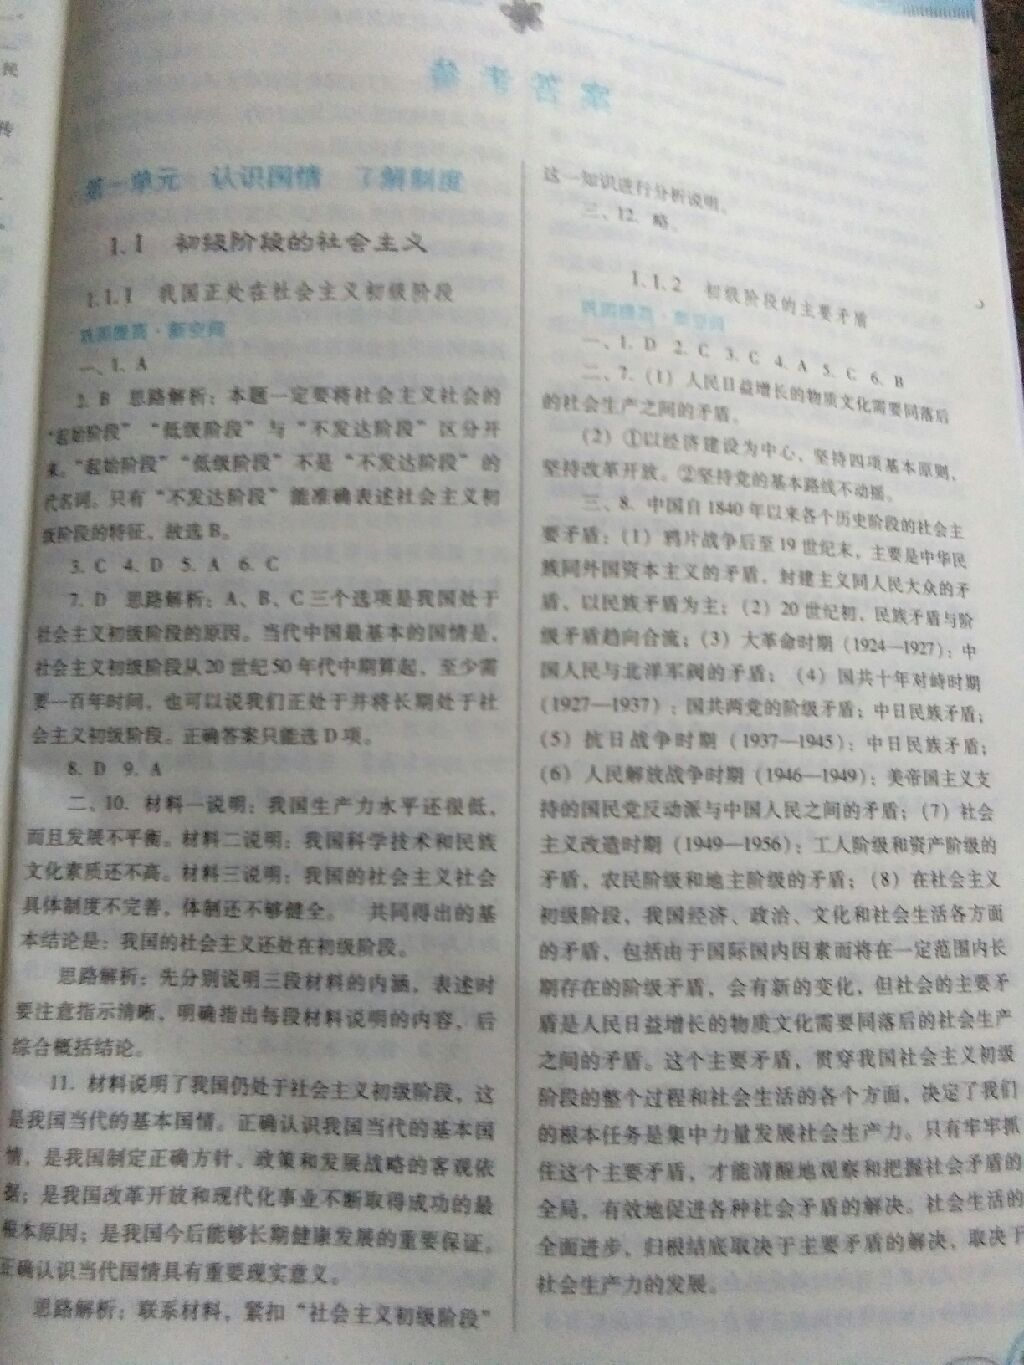 民
传
参考答案
第一单元 认识国情 了解制度
1.1 初级阶段的社会主义
1.1.1 我国正处在社会主义初级阶段
巩固提高·新空间
一、1. A
2. B 思路解析：本题一定要将社会主义社会的
“起始阶段”“低级阶段”与“不发达阶段”区分开
来。“起始阶段”“低级阶段”不是“不发达阶段”的
代名词。只有“不发达阶段”能准确表述社会主义初
级阶段的特征，故选 B。
3. C 4. D 5. A 6. C
7. D 思路解析：A、B、C 三个选项是我国处于
社会主义初级阶段的原因。当代中国最基本的国情是，
社会主义初级阶段从 20 世纪 50 年代中期算起，至少需
要一百年时间，也可以说我们正处于并将长期处于社
会主义初级阶段。正确答案只能选 D 项。
8. D 9. A
二、10. 材料一说明：我国生产力水平还很低，
而且发展不平衡。材料二说明：我国科学技术和民族
文化素质还不高。材料三说明：我国的社会主义社会
具体制度不完善，体制还不够健全。 共同得出的基
本结论是：我国的社会主义还处在初级阶段。
思路解析：先分别说明三段材料的内涵，表述时
要注意指示清晰，明确指出每段材料说明的内容，后
综合概括结论。
11. 材料说明了我国仍处于社会主义初级阶段，这
是我国当代的基本国情。正确认识我国当代的基本国
情，是我国制定正确方针、政策和发展战略的客观依
据；是我国改革开放和现代化事业不断取得成功的最
根本原因；是我国今后能够长期健康发展的重要保证。
正确认识当代国情具有重要现实意义。
思路解析：联系材料，紧扣“社会主义初级阶段”
这一知识进行分析说明。
三、12. 略。
1.1.2 初级阶段的主要矛盾
巩固提高·新空间
一、1. D 2. C 3. C 4. A 5. C 6. B
二、7. （1）人民日益增长的物质文化需要同落后
的社会生产之间的矛盾。
（2）①以经济建设为中心，坚持四项基本原则，
坚持改革开放。②坚持党的基本路线不动摇。
三、8. 中国自 1840 年以来各个历史阶段的社会主
要矛盾：（1）鸦片战争后至 19 世纪末，主要是中华民
族同外国资本主义的矛盾，封建主义同人民大众的矛
盾，以民族矛盾为主；（2）20 世纪初，民族矛盾与阶
级矛盾趋向合流；（3）大革命时期（1924—1927）：中
国人民与北洋军阀的矛盾；（4）国共十年对峙时期
（1927—1937）：国共两党的阶级矛盾；中日民族矛盾；
（5）抗日战争时期（1937—1945）：中日民族矛盾；
（6）人民解放战争时期（1946—1949）：美帝国主义支
持的国民党反动派与中国人民之间的矛盾；（7）社会
主义改造时期（1949—1956）：工人阶级和资产阶级的
矛盾，农民阶级和地主阶级的矛盾；（8）在社会主义
初级阶段，我国经济、政治、文化和社会生活各方面
的矛盾，包括由于国际国内因素而将在一定范围内长
期存在的阶级矛盾，会有新的变化，但社会的主要矛
盾是人民日益增长的物质文化需要同落后的社会生产
之间的矛盾。这个主要矛盾，贯穿我国社会主义初级
阶段的整个过程和社会生活的各个方面，决定了我们
的根本任务是集中力量发展社会生产力。只有牢牢抓
住这个主要矛盾，才能清醒地观察和把握社会矛盾的
全局，有效地促进各种社会矛盾的解决。社会生活的
全面进步，归根结底取决于主要矛盾的解决，取决于
社会生产力的发展。